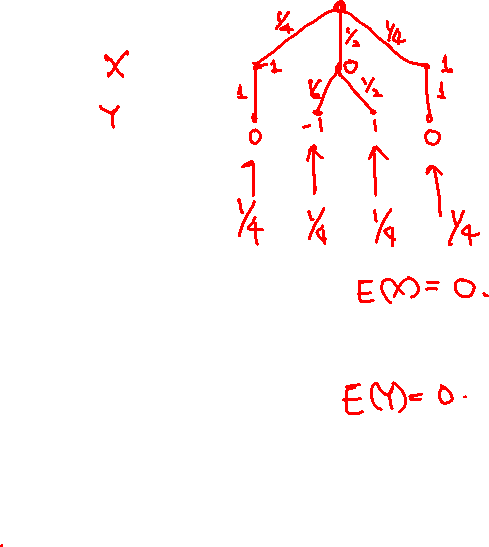 1/4 1/2 1/4
X -1 0 1
1 1/2 1/2 1
Y 0 -1 1 0
1/4 1/4 1/4 1/4
E(X) = 0.
E(Y) = 0.